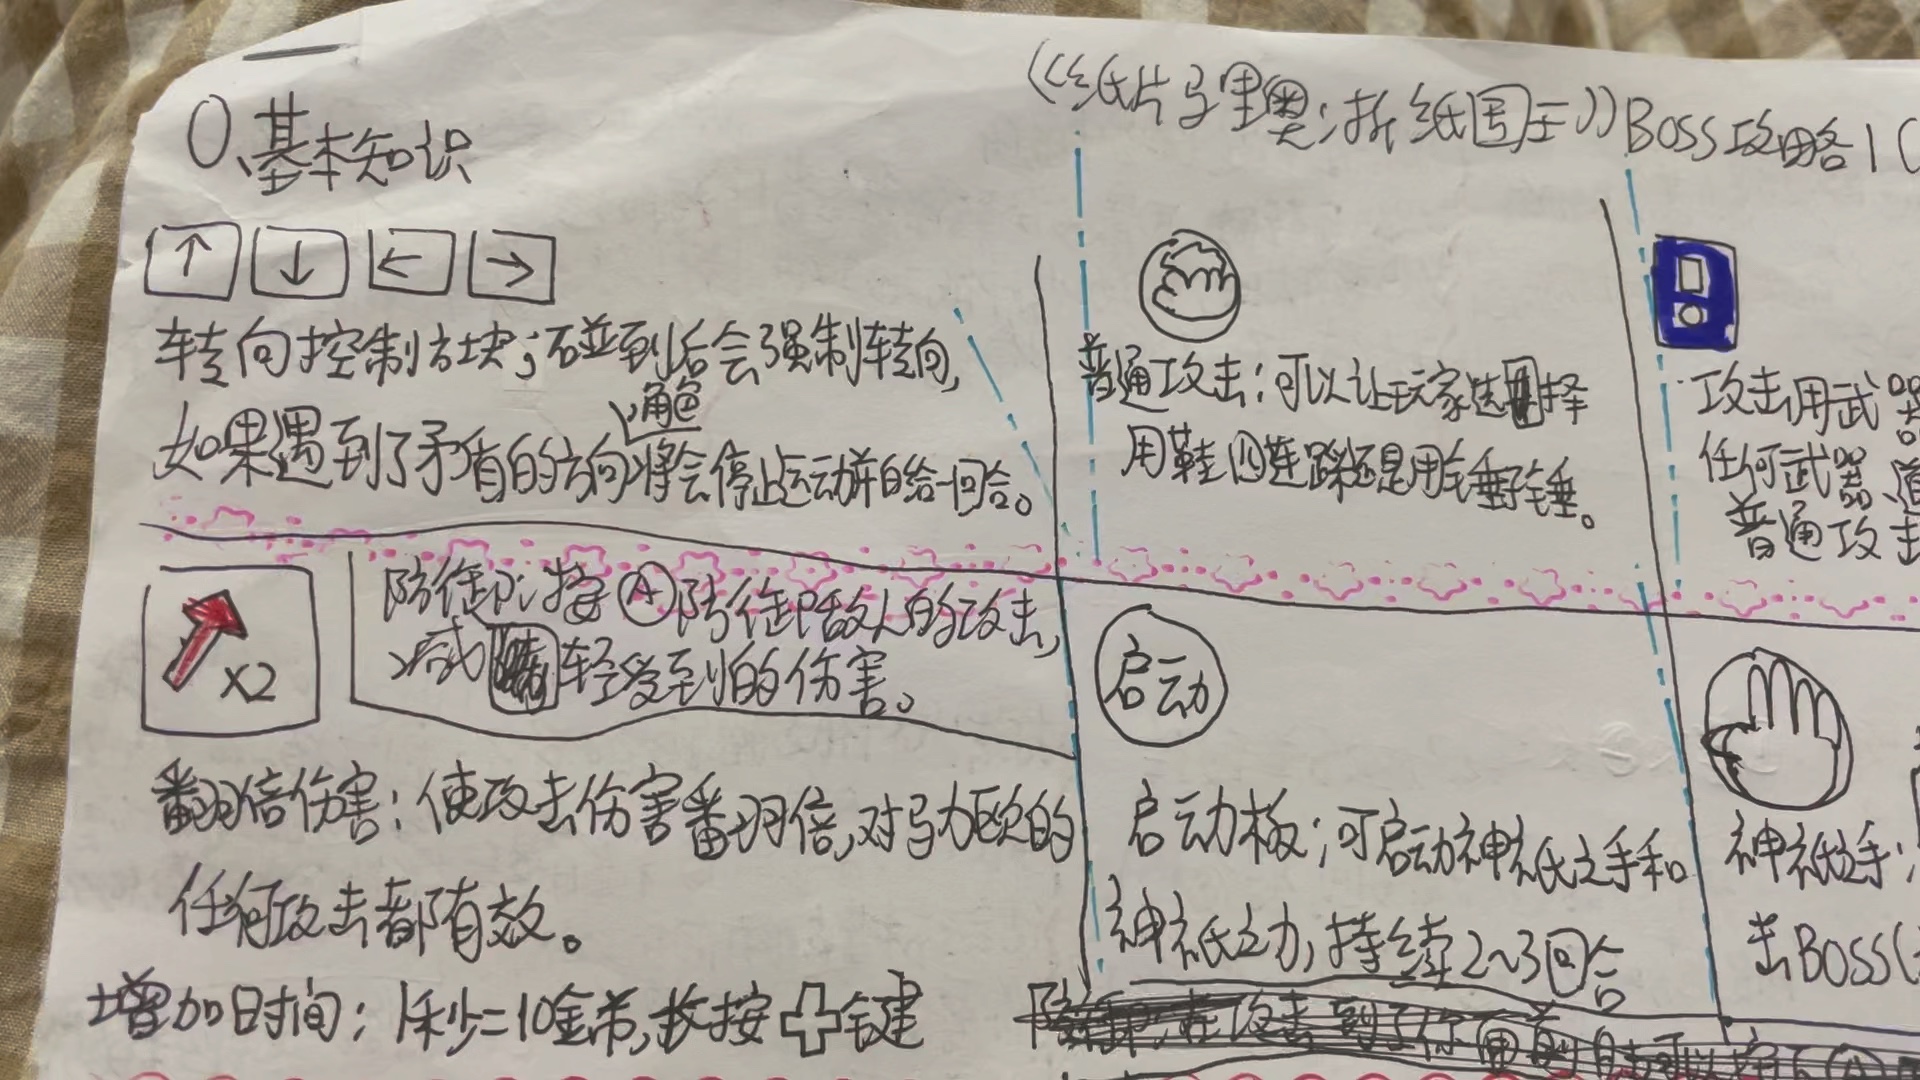 《纸片马里奥:折纸国王》Boss攻略1(
0、基本知识
↑ ↓ ← →
转向控制方块:碰到后会强制转向,
如果遇到了矛盾的方向,将会停止运动并白给一回合。
普通攻击:可以让玩家选择
用鞋四连踩还是用锤子锤。
攻击用武器
任何武器、道
普通攻击
X2
防御:按Ⓐ防御敌人的攻击,
减轻受到的伤害。
翻倍伤害:使攻击伤害翻倍,对马力欧的
任何攻击都有效。
增加时间:1秒=10金币,按✚键
启动
启动板:可启动神祇之手和
神祇之力,持续2~3回合
神祇之手:
击BOSS(